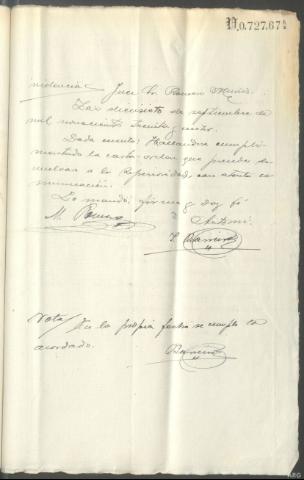 N.0.727.671
Providencia Juez Sr. Romero
Lax diecisiete de septiembre de
mil novecientos treinta y cuatro.
Dada cuenta; Hallandose cumpli-
mentada la carta-orden que precede de-
vuelvase a la Superioridad, con atenta co-
municación.
Lo mandó, firma y doy fé
M. Romero Ante mi
F. Ramirez
Nota/ En la propia fecha se cumple lo
acordado.
Ramirez
ARG